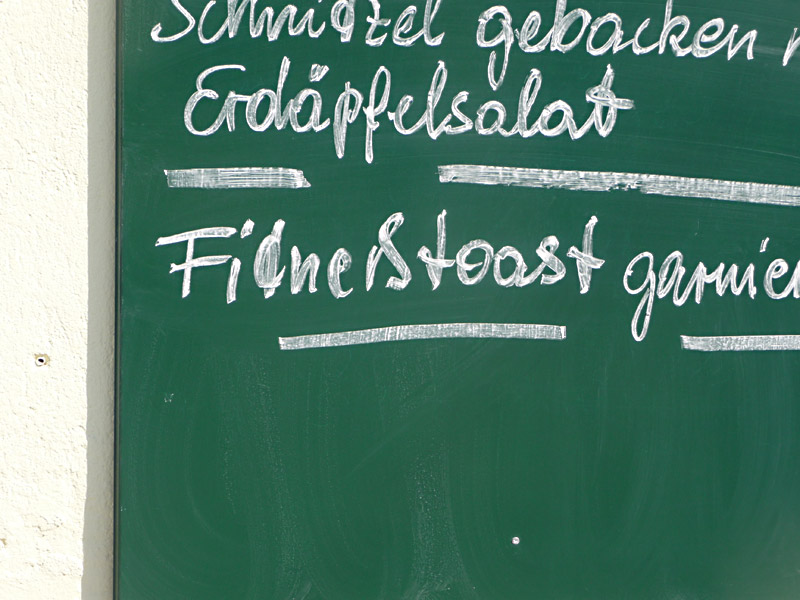 Schnitzel gebacken
Erdäpfelsalat
Fitneßtoast garnier